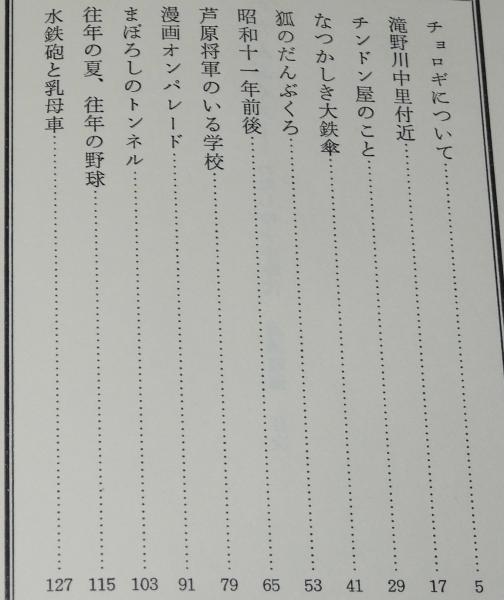 チョロギについて 5
滝野川中里付近 17
チンドン屋のこと 29
なつかしき大鉄傘 41
狐のだんぶくろ 53
昭和十一年前後 65
芦原将軍のいる学校 79
漫画オンパレード 91
まぼろしのトンネル 103
往年の夏、往年の野球 115
水鉄砲と乳母車 127